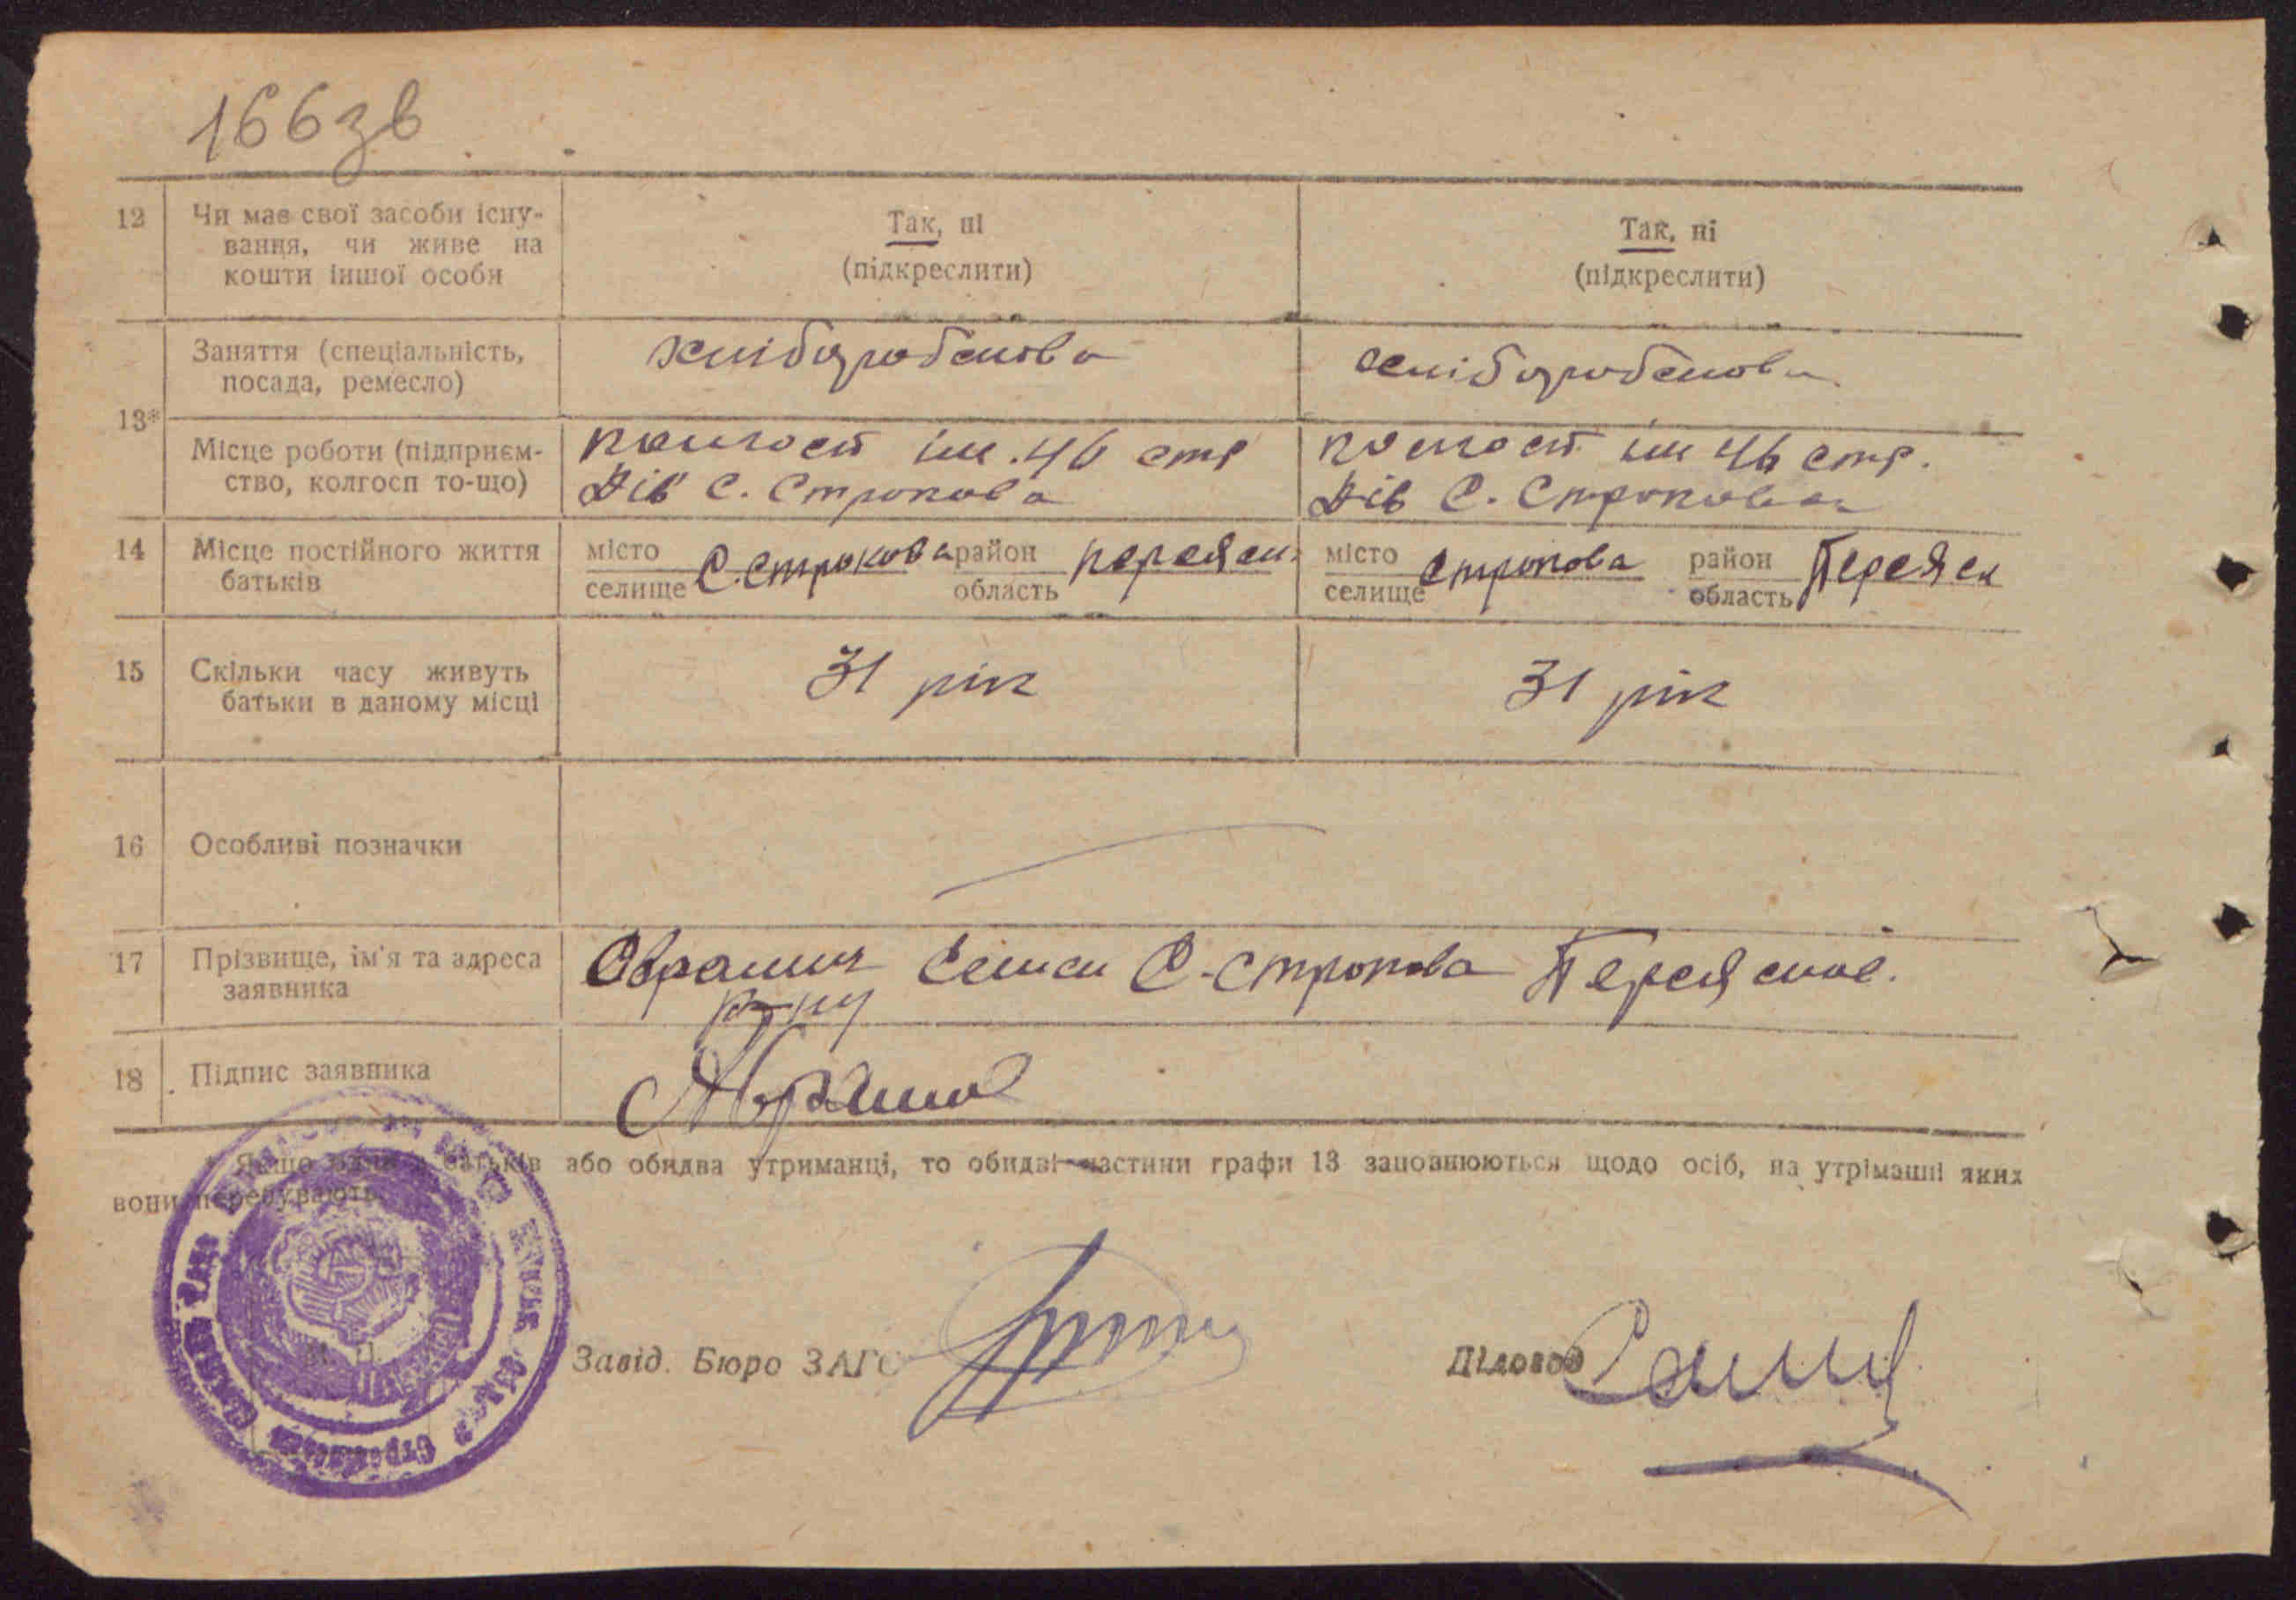 166зв
12 Чи має свої засоби існу-
вання, чи живе на
кошти іншої особи
Так, ні
(підкреслити)
Так, ні
(підкреслити)
13*
Заняття (спеціальність,
посада, ремесло)
хлібозробскова
хлібозробскова
Місце роботи (підприєм-
ство, колгосп то-що)
колгосп їм. 46 стр
Дів с. Строкова
колгосп їм 46 стр.
Дів С. Строкова
14 Місце постійного життя
батьків
місто
селище
С. Строкова
район
область
переясл.
місто
селище
Строкова
район
область
Переясл
15 Скільки часу живуть
батьки в даному місці
31 рік
31 рік
16 Особливі позначки
17 Прізвище, ім'я та адреса
заявника
С-Строкова Переяслов.
р-ну
18 Підпис заявника
* Якщо один з батьків або обидва утриманці, то обидві частини графи 13 заповнюються щодо осіб, на утріманні яких
вони перебувають.
М. П.
Завід. Бюро ЗАГС
Діловод